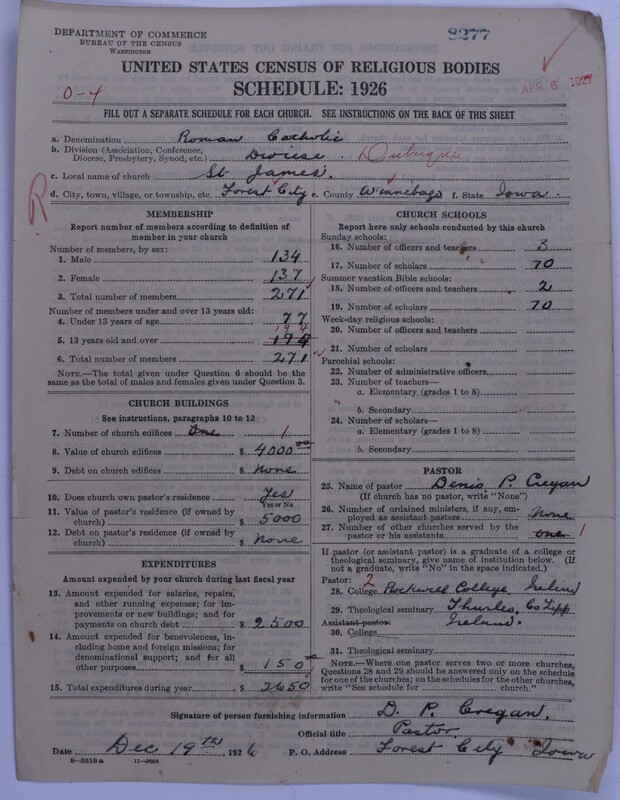 DEPARTMENT OF COMMERCE
BUREAU OF THE CENSUS
WASHINGTON
8277
APR 6 1927
UNITED STATES CENSUS OF RELIGIOUS BODIES
SCHEDULE: 1926
0-4
FILL OUT A SEPARATE SCHEDULE FOR EACH CHURCH. SEE INSTRUCTIONS ON THE BACK OF THIS SHEET
a. Denomination Roman Catholic
b. Division (Association, Conference, Diocese, Presbytery, Synod, etc.) Diocese. Dubuque
c. Local name of church St James.
d. City, town, village, or township, etc. Forest City e. County Winnebago f. State Iowa.
R
MEMBERSHIP
Report number of members according to definition of member in your church
Number of members, by sex:
1. Male 134
2. Female 137
3. Total number of members 271
Number of members under and over 13 years old:
4. Under 13 years of age 77
194
5. 13 years old and over 194
6. Total number of members 271
NOTE.—The total given under Question 6 should be the same as the total of males and females given under Question 3.
CHURCH BUILDINGS
See instructions, paragraphs 10 to 12
7. Number of church edifices One 1
8. Value of church edifices $ 4000.00
9. Debt on church edifices $ None
10. Does church own pastor's residence Yes
Yes or No
11. Value of pastor's residence (if owned by church) $ 5000
12. Debt on pastor's residence (if owned by church) $ None
EXPENDITURES
Amount expended by your church during last fiscal year
13. Amount expended for salaries, repairs, and other running expenses; for improvements or new buildings; and for payments on church debt $ 2500
14. Amount expended for benevolences, including home and foreign missions; for denominational support; and for all other purposes $ 150.00
15. Total expenditures during year $ 2650
CHURCH SCHOOLS
Report here only schools conducted by this church
Sunday schools:
16. Number of officers and teachers 3
17. Number of scholars 70
Summer vacation Bible schools:
18. Number of officers and teachers 2
19. Number of scholars 70
Week-day religious schools:
20. Number of officers and teachers
21. Number of scholars
Parochial schools:
22. Number of administrative officers
23. Number of teachers—
a. Elementary (grades 1 to 8)
b. Secondary
24. Number of scholars—
a. Elementary (grades 1 to 8)
b. Secondary
PASTOR
25. Name of pastor Denis P. Cregan
(If church has no pastor, write "None")
26. Number of ordained ministers, if any, employed as assistant pastors None
27. Number of other churches served by the pastor or his assistants one 1
If pastor (or assistant pastor) is a graduate of a college or theological seminary, give name of institution below. (If not a graduate, write "No" in the space indicated.)
Pastor: 2
28. College Rockwell College, Ireland
29. Theological seminary Thurles, Co Tipp.
Assistant pastor: Ireland.
30. College
31. Theological seminary
NOTE.—Where one pastor serves two or more churches, Questions 28 and 29 should be answered only on the schedule for one of the churches; on the schedules for the other churches, write "See schedule for church."
Signature of person furnishing information D. P. Cregan.
Official title Pastor.
Date Dec 19TH, 1926 P. O. Address Forest City Iowa
8-5518 a 11-9064